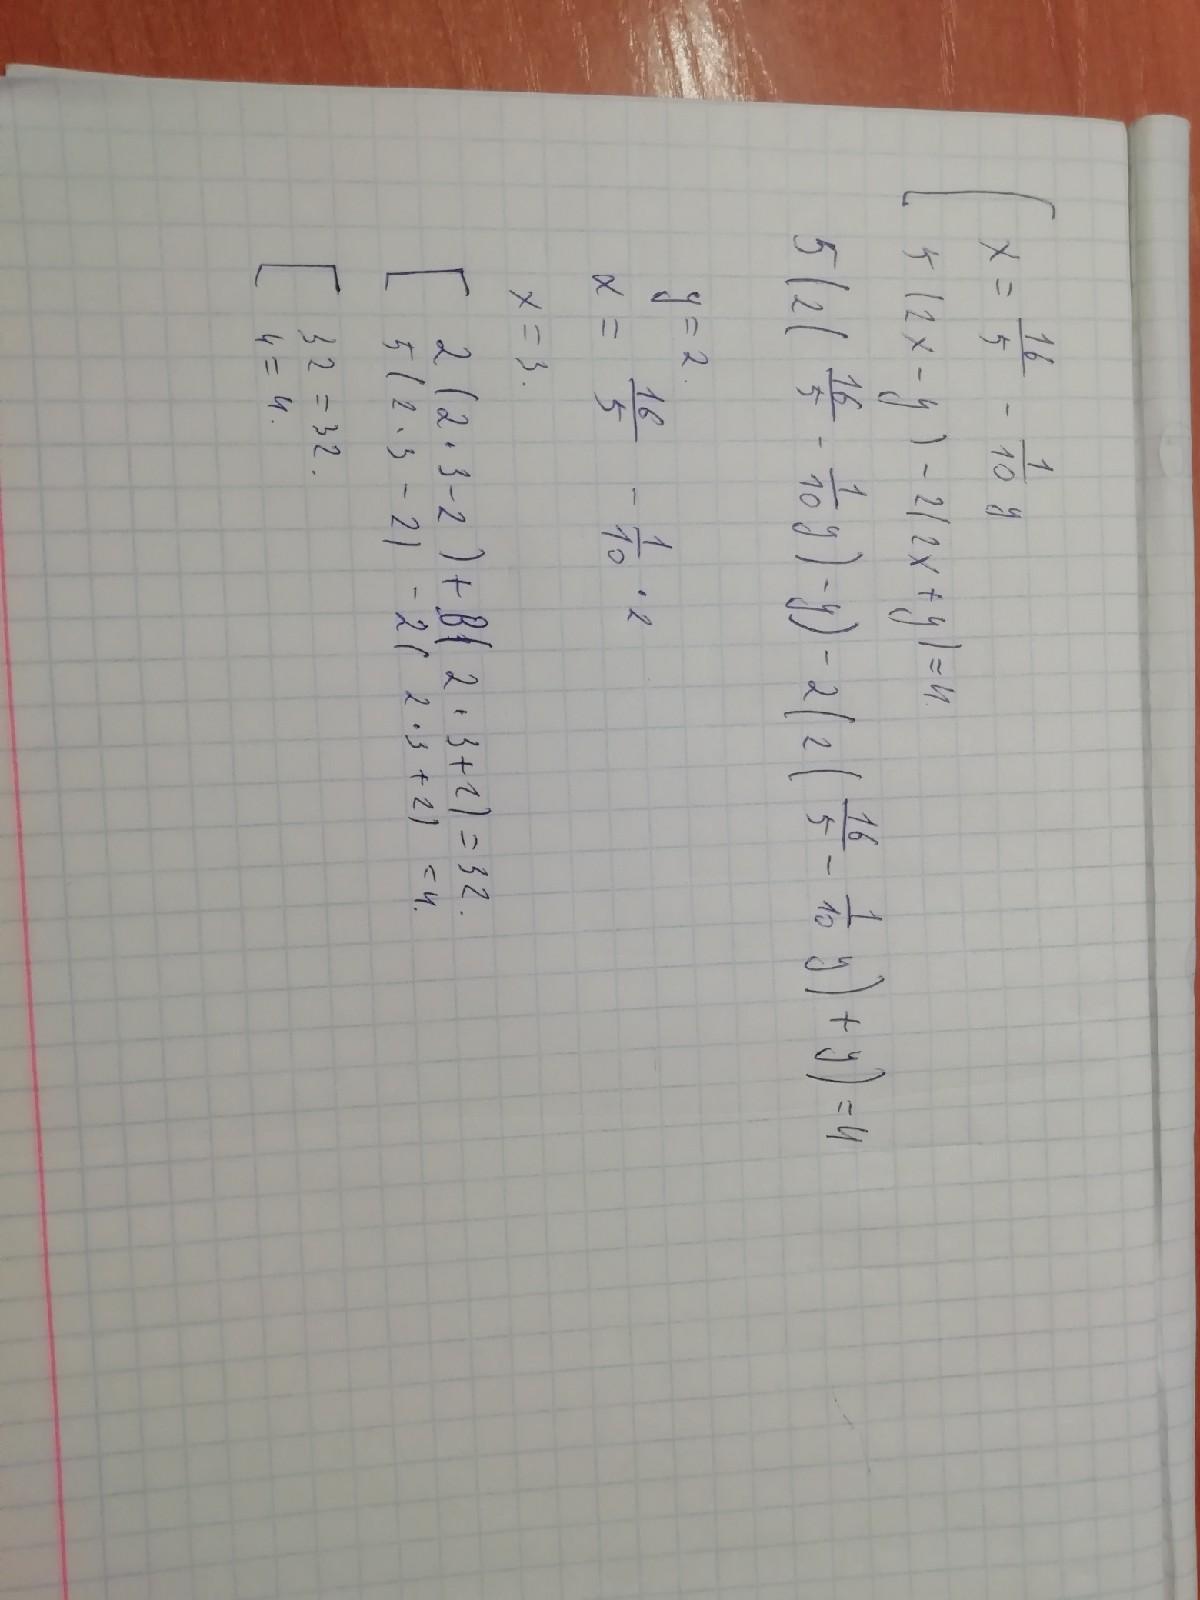 [ x = 16/5 - 1/10 y
5(2x - y) - 2(2x + y) = 4.
5(2(16/5 - 1/10 y) - y) - 2(2(16/5 - 1/10 y) + y) = 4
y = 2.
x = 16/5 - 1/10 · 2
x = 3.
[ 2(2·3 - 2) + 3(2·3 + 2) = 32.
5(2·3 - 2) - 2(2·3 + 2) = 4.
[ 32 = 32.
4 = 4.